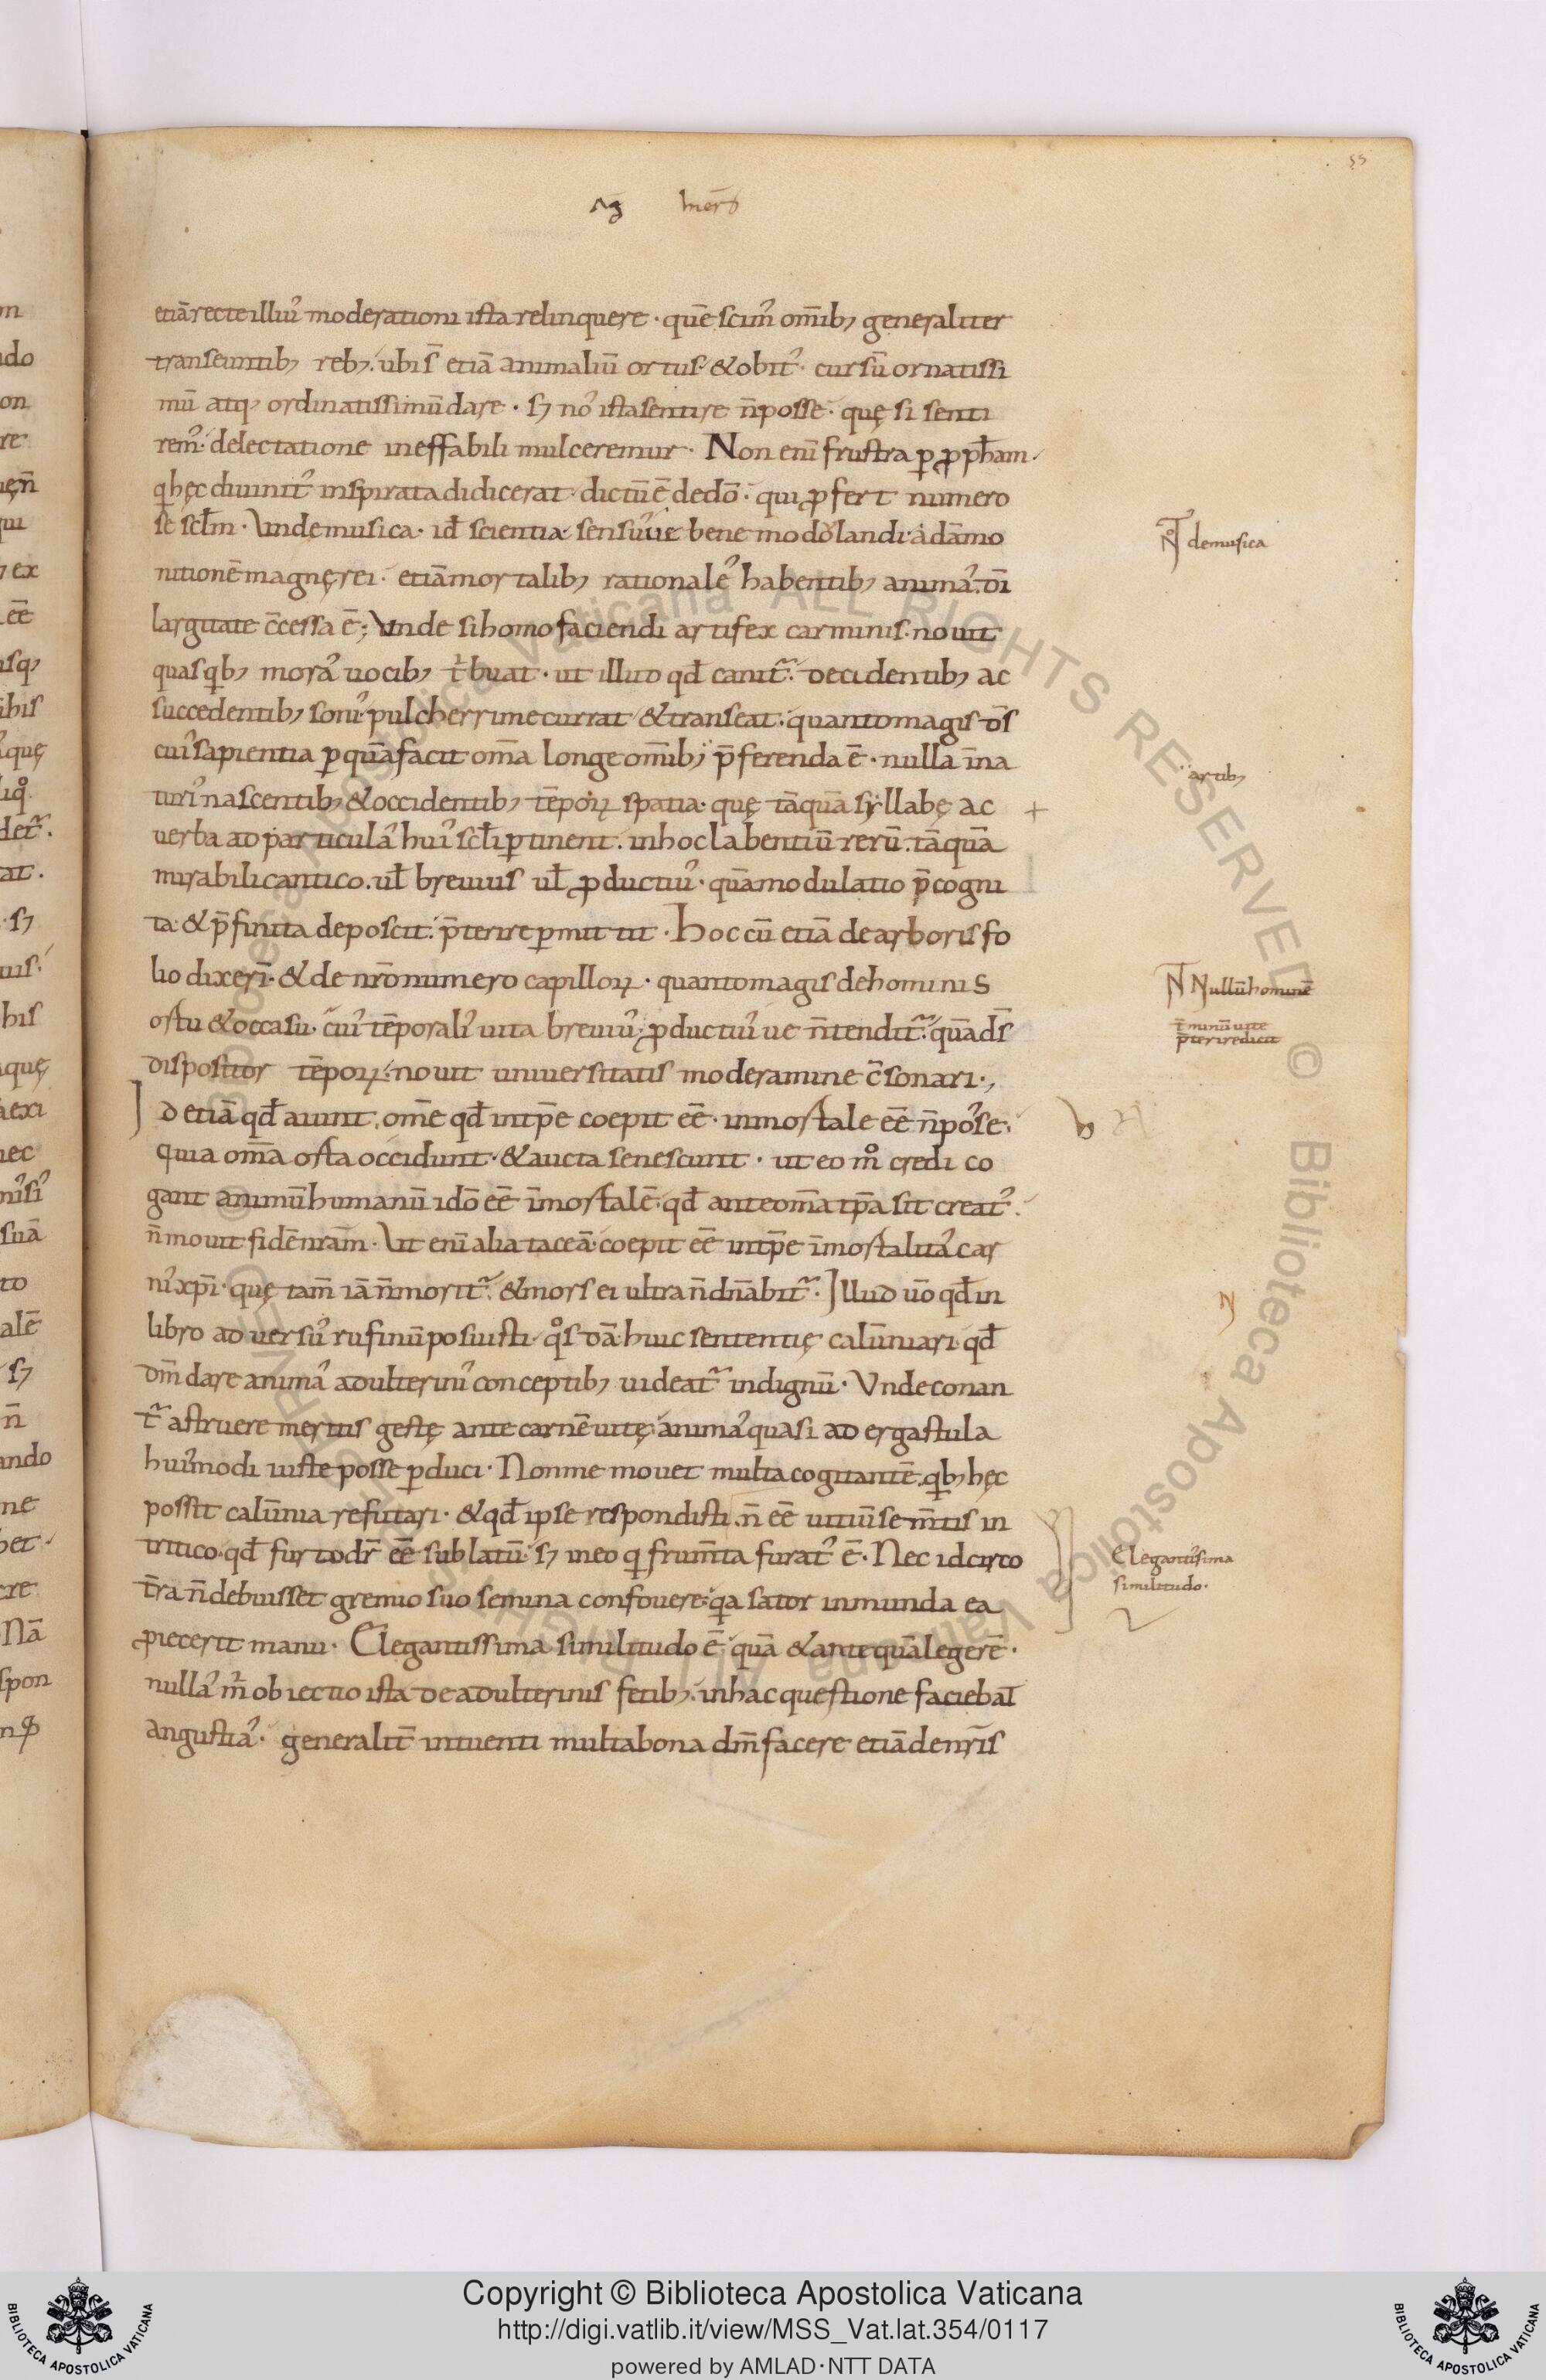 55
Ag hiero
etiā recte illiuˀ moderationi ista relinquere · quē scimˀ om̄ibꝫ generaliter
transeuntibꝫ rebꝫ · ubi s̄ etiā animaliū ortus · & obitˀ · cursū ornatissi
mū atqꝫ ordinatissimū dare · sꝫ noˀ ista sentire n̄ posse · quę si senti
remˀ · delectatione ineffabili mulceremur · Non enī frustra ꝑ ꝓph̄am ·
q hęc diuinitˀ inspirata didicerat · dictū ē de dō · qui ꝓfert numero
se scl̄m · Vnde musica · id̄ scientia sensuˀ ue bene modolandi · ad āmo
nitionē magnę rei · etiā mortalibꝫ rationaleˀ habentibꝫ animaˀ · dī
largitate c̄cessa ē ; Vnde si homo faciendi artifex carminis · nouit
quas qibꝫ moraˀ uocibꝫ tͥbuat · ut illud qd̄ canit᷑ · decidentibꝫ ac
succedentibꝫ soniˀ pulcherrime currat & transeat · quanto magis d̄s
cuiˀ sapientia ꝑ quā facit om̄a longe om̄ibꝫ p̄ferenda ē · nulla in na
turiˀ nascentibꝫ & occidentibꝫ tēpoꝝ spatia · quę tāquā syllabę ac
uerba ad particulaˀ huiˀ scl̄i ꝑtinent · in hoc labentiū rerū · tāquā
mirabili cantico · ul̄ breuius ul̄ ꝓductiuˀ · quā modulatio p̄cogni
ta · & p̄finita deposcit · p̄terire ꝑmittit · Hoc cū etiā de arboris fo
lio dixerī · & de nr̄o numero capilloꝝ · quanto magis de hominis
ortu & occasu · cuiˀ tēporaliˀ uita breuiuˀ ꝓductiuˀ ue n̄ tendit᷑ · quā d̄s
dispositor tēpoꝝ · nouit uniuersitatis moderamine c̄sonari ·,
Id etiā qd̄ aiunt · om̄e qd̄ in tp̄e coepit eē̄ · inmortale eē̄ n̄ poˀse ·
quia om̄a orta occidunt · & aucta senescunt · ut eo mͦ credi co
gant animū humanū idō eē̄ īmortalē · qd̄ ante om̄a tp̄a sit creatˀ ·
n̄ mouit fidē nr̄am · Vt enī alia taceā · coepit eē̄ in tp̄e īmortalitaˀ car
niˀ xp̄i · quę tam̄ iā n̄ morit᷑ · & mors ei ultra n̄ dn̄abit᷑ · Illud uō qd̄ in
libro aduersuˀ rufinū posuisti · qͦsdā huic sententię calūniari · qd̄
dm̄ dare animaˀ adulteriniˀ conceptibꝫ uideat᷑ indignū · Vnde conan
t᷑ astruere meritis gestę ante carnē uitę · animaˀ quasi ad ergastula
huiˀmodi iuste posse ꝑduci · Non me mouet multa cogitantē · qibꝫ hęc
possit calūnia refutari · & qd̄ ipse respondisti · n̄ eē̄ uitiū sem̄tis in
tritico · qd̄ furto dr̄ eē̄ sublatū · sꝫ in eo qi frum̄ta furatˀ ē · Nec idcirco
t̄ra n̄ debuisset gremio suo semina confouere · qia sator inmunda ea
ꝓiecerit manu · Elegantissima similitudo ē · quā & ante quā legerē ·
nullaˀ mͥ obiectio ista de adulterinis fetibꝫ · in hac questione faciebat
angustiaˀ · generalit̄ intuenti multa bona dm̄ facere etiā de nr̄is
de musica
artibꝫ
Nullū hominē
t̄minū uite
p̄terire dicit
Elegantiˀsima
similitudo ·
Copyright © Biblioteca Apostolica Vaticana
http://digi.vatlib.it/view/MSS_Vat.lat.354/0117
powered by AMLAD·NTT DATA
BIBLIOTECA APOSTOLICA VATICANA
BIBLIOTECA APOSTOLICA VATICANA